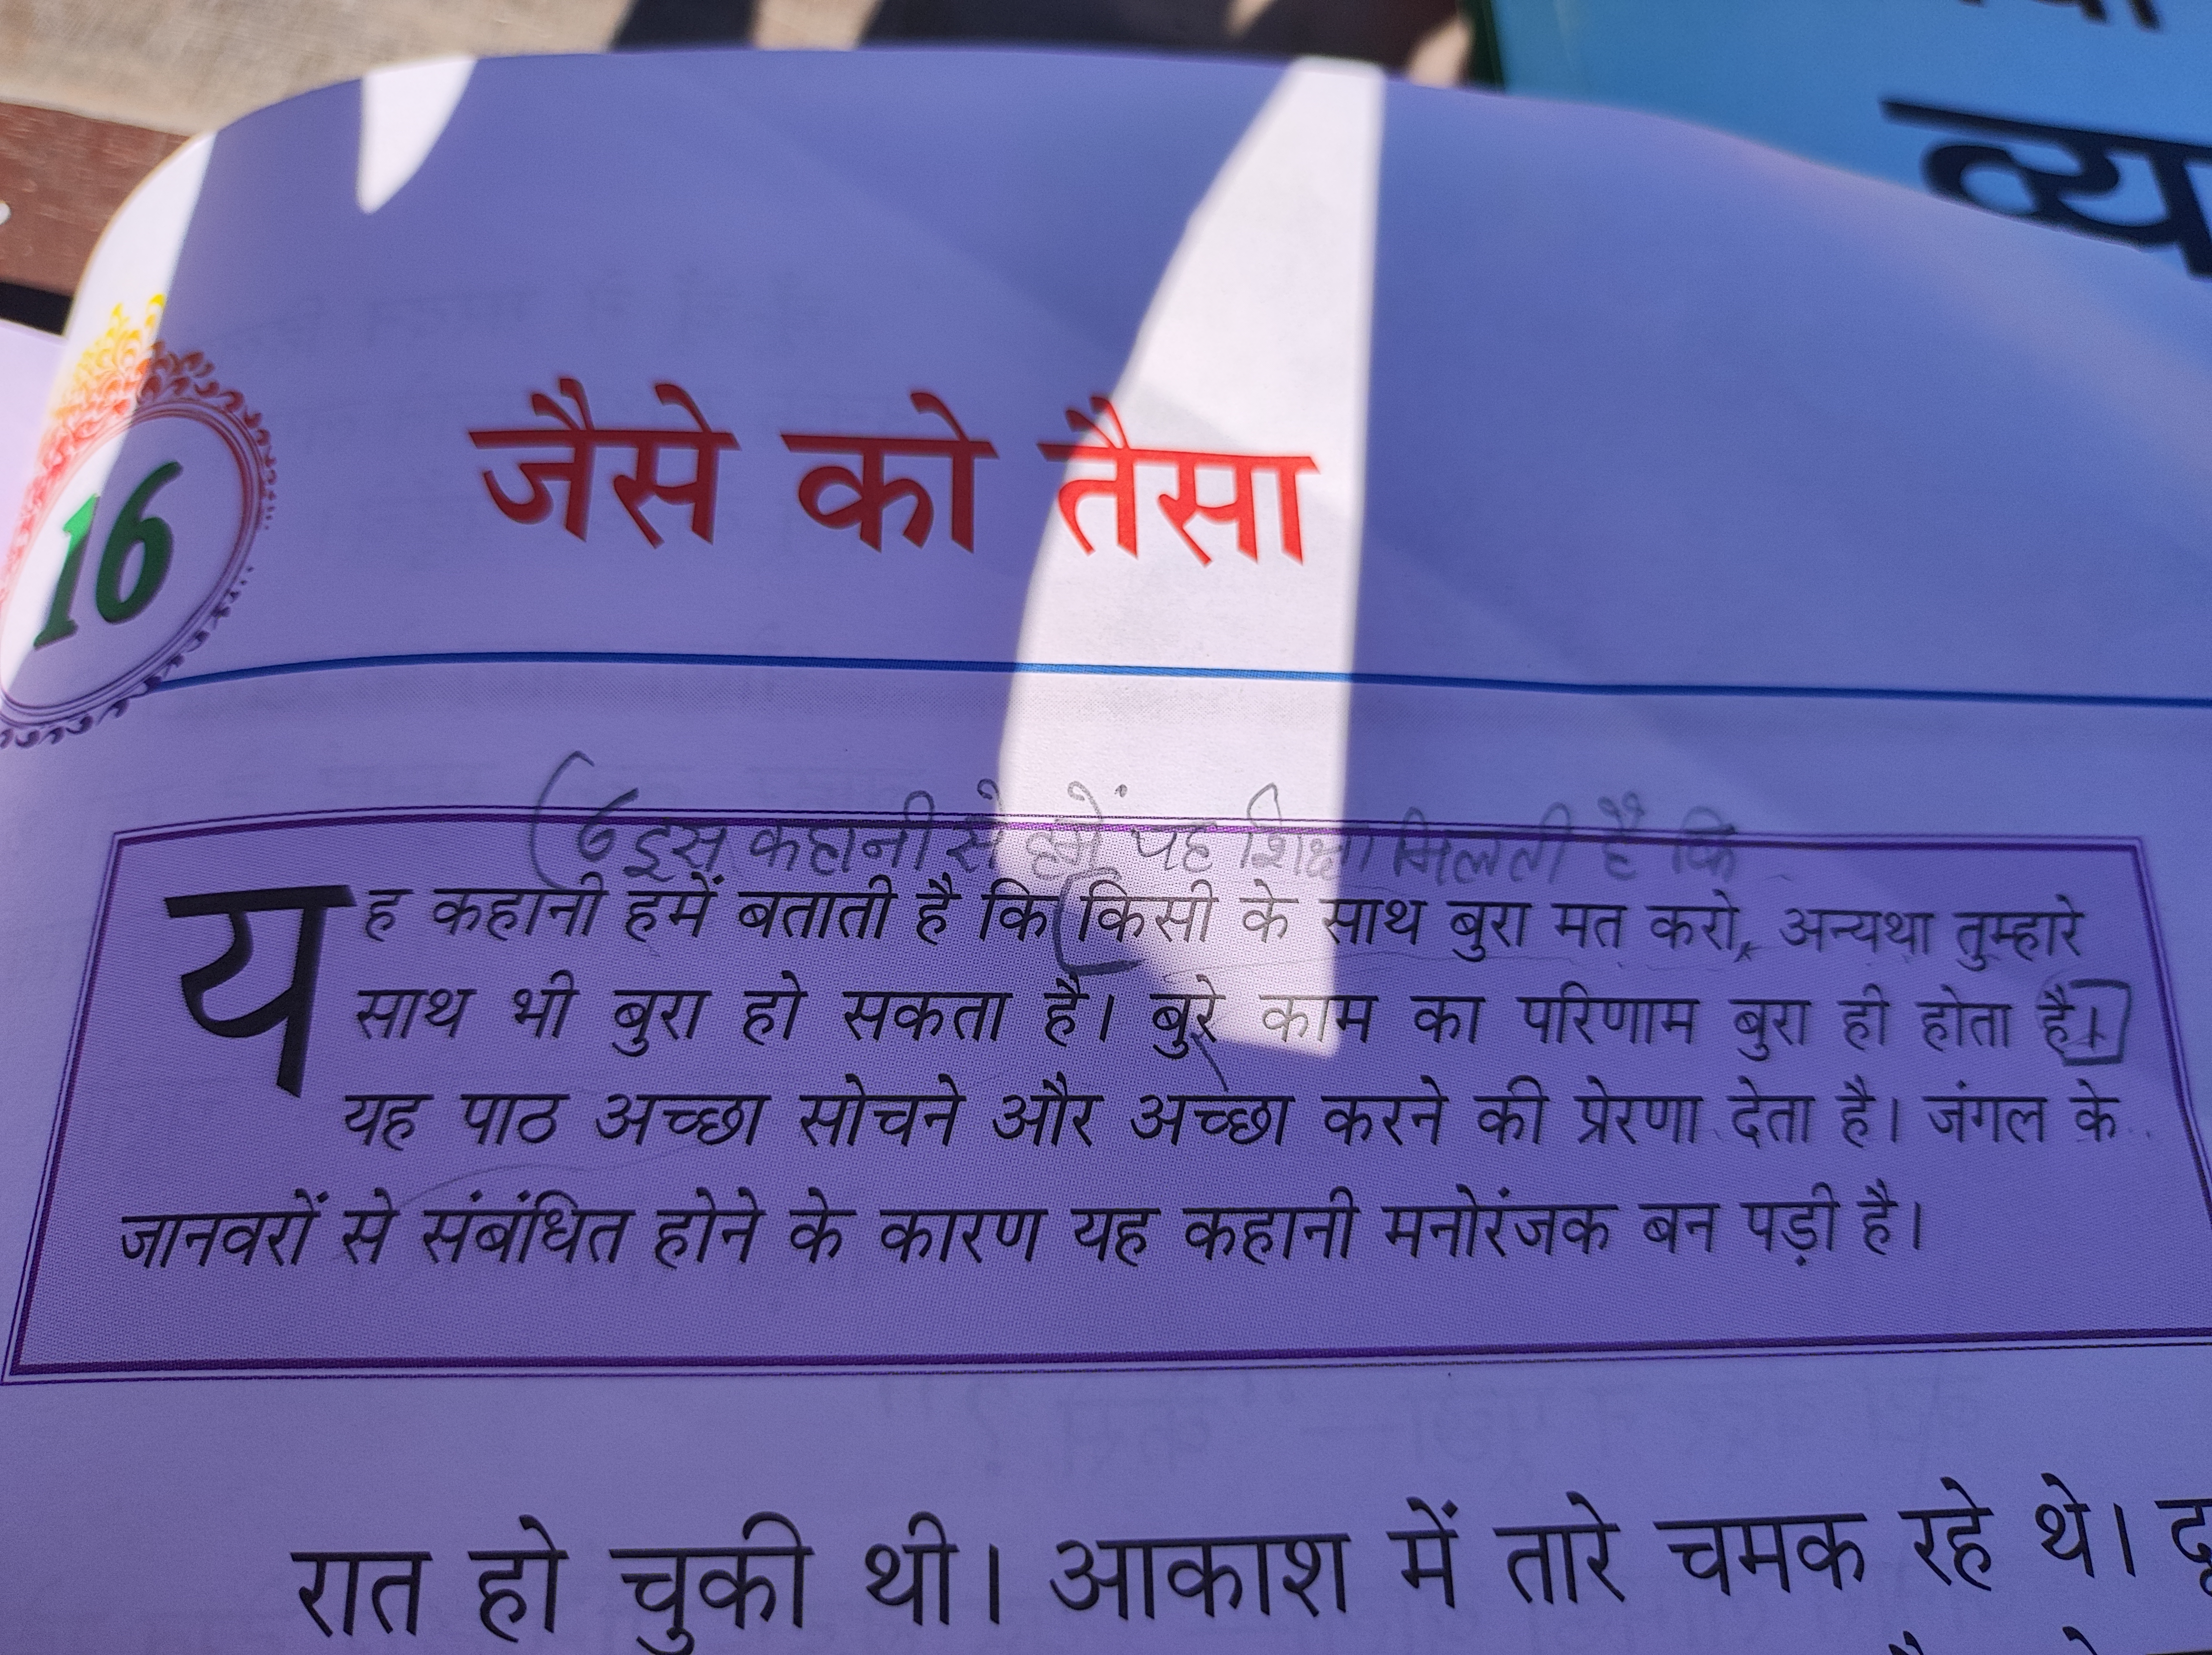 व्य
16
जैसे को तैसा
(6 इस कहानी से हमें यह शिक्षा मिलती है कि
यह कहानी हमें बताती है कि (किसी के साथ बुरा मत करो, अन्यथा तुम्हारे
साथ भी बुरा हो सकता है। बुरे काम का परिणाम बुरा ही होता है।
यह पाठ अच्छा सोचने और अच्छा करने की प्रेरणा देता है। जंगल के
जानवरों से संबंधित होने के कारण यह कहानी मनोरंजक बन पड़ी है।
रात हो चुकी थी। आकाश में तारे चमक रहे थे।